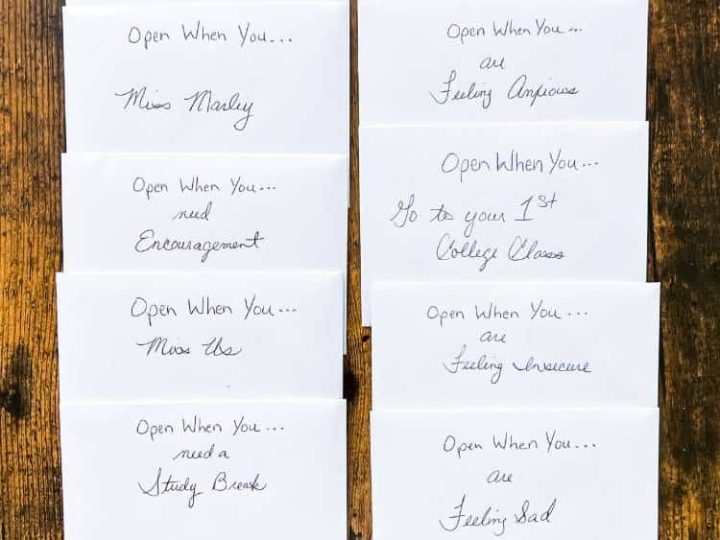 Open When You...
Miss Marley
Open When You...
need
Encouragement
Open When You...
Miss Us
Open When You...
need a
Study Break
Open When You...
are
Feeling Anxious
Open When You...
Go to your 1st
College Class
Open When You...
are
Feeling Insecure
Open When You...
are
Feeling Sad